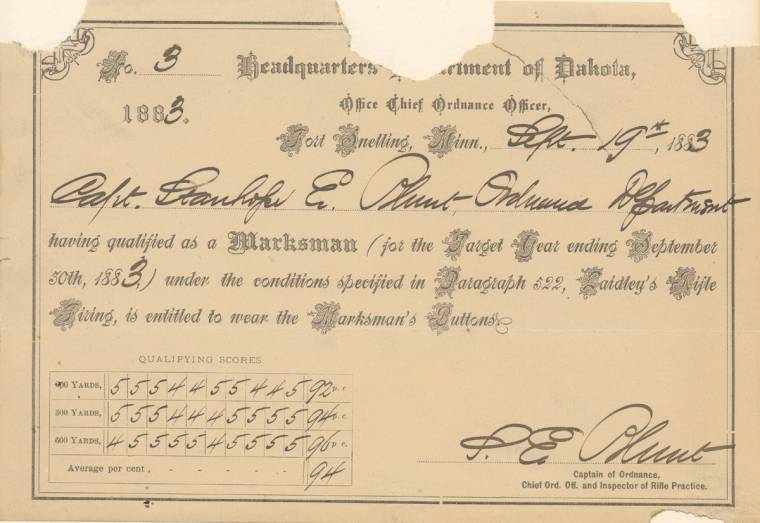 No. 3 Headquarters rtment of Dakota,
1883. Office Chief Ordnance Officer,
Fort Snelling, Minn., Sept. 19th, 1883
Capt. Stanhope E. Blunt, Ordnance Department
having qualified as a Marksman (for the Target Year ending September
30th, 1883,) under the conditions specified in Paragraph 522, Laidley's Rifle
Firing, is entitled to wear the Marksman's Buttons.
QUALIFYING SCORES
YARDS, 5 5 5 4 4 5 5 4 4 5 92 p. c.
300 YARDS, 5 5 5 4 4 4 5 5 5 5 94 p. c.
600 YARDS, 4 5 5 5 5 4 5 5 5 5 96 p. c.
Average per cent, - - - - 94
S. E. Blunt
Captain of Ordnance,
Chief Ord. Off. and Inspector of Rifle Practice.